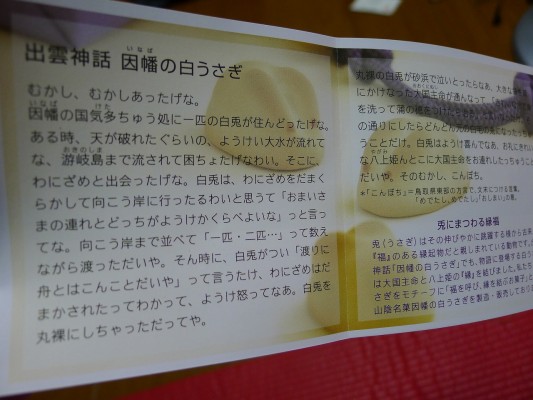 出雲神話 因幡の白うさぎ
いなば
むかし、むかしあったげな。
因幡の国気多ちゅう処に一匹の白兎が住んどったげな。
いなば けた
ある時、天が破れたぐらいの、ようけい大水が流れて
な、游岐島まで流されて困ちょたげなわい。そこに、
おきのしま
わにざめと出会ったげな。白兎は、わにざめをだまく
らかして向こう岸に行ったるわいと思うて「おまいさ
まの連れとどっちがようけかくらべよいな」っと言っ
てな。向こう岸まで並べて「一匹・二匹…」って数え
ながら渡っただいや。そん時に、白兎がつい「渡りに
舟とはこんことだいや」って言うたけ、わにざめはだ
まかされたってわかって、ようけ怒ってなあ。白兎を
丸裸にしちゃっただってや。
丸裸の白兎が砂浜で泣いとったらなあ、大きな
にかけなった大国主命が通んなって、
を洗って蒲の穂を
の通りにしたらどんどん
うことだけ。白兎はようけ喜んでなあ、お礼にきれい
な八上姫んとこに大国主命をお連れしたっちゅうこと
だいや。そのむかし、こんぽち。
＊「こんぽち」＝鳥取県東部の方言で、文末につける言葉。
「めでたし、めでたし」「おしまい」の意。
兎にまつわる縁福
兎（うさぎ）はその伸びやかに跳躍する様から古来、
『福』のある縁起物だと親しまれている動物です。
神話「因幡の白うさぎ」でも、物語に登場する白う
は大国主命と八上姫の『縁』を結びました。私たち
さぎをモチーフに「福を呼び、縁を結ぶお菓子」
山陰名菓因幡の白うさぎを製造・販売しており